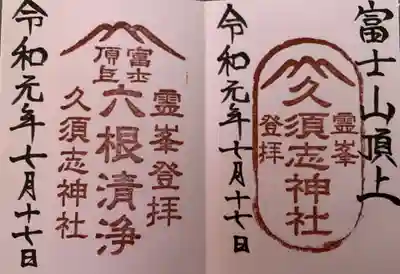 富士山頂上
霊峯
久須志神社
登拝
令和元年七月十七日
富士
頂上
霊峯登拝
六根清浄
久須志神社
令和元年七月十七日